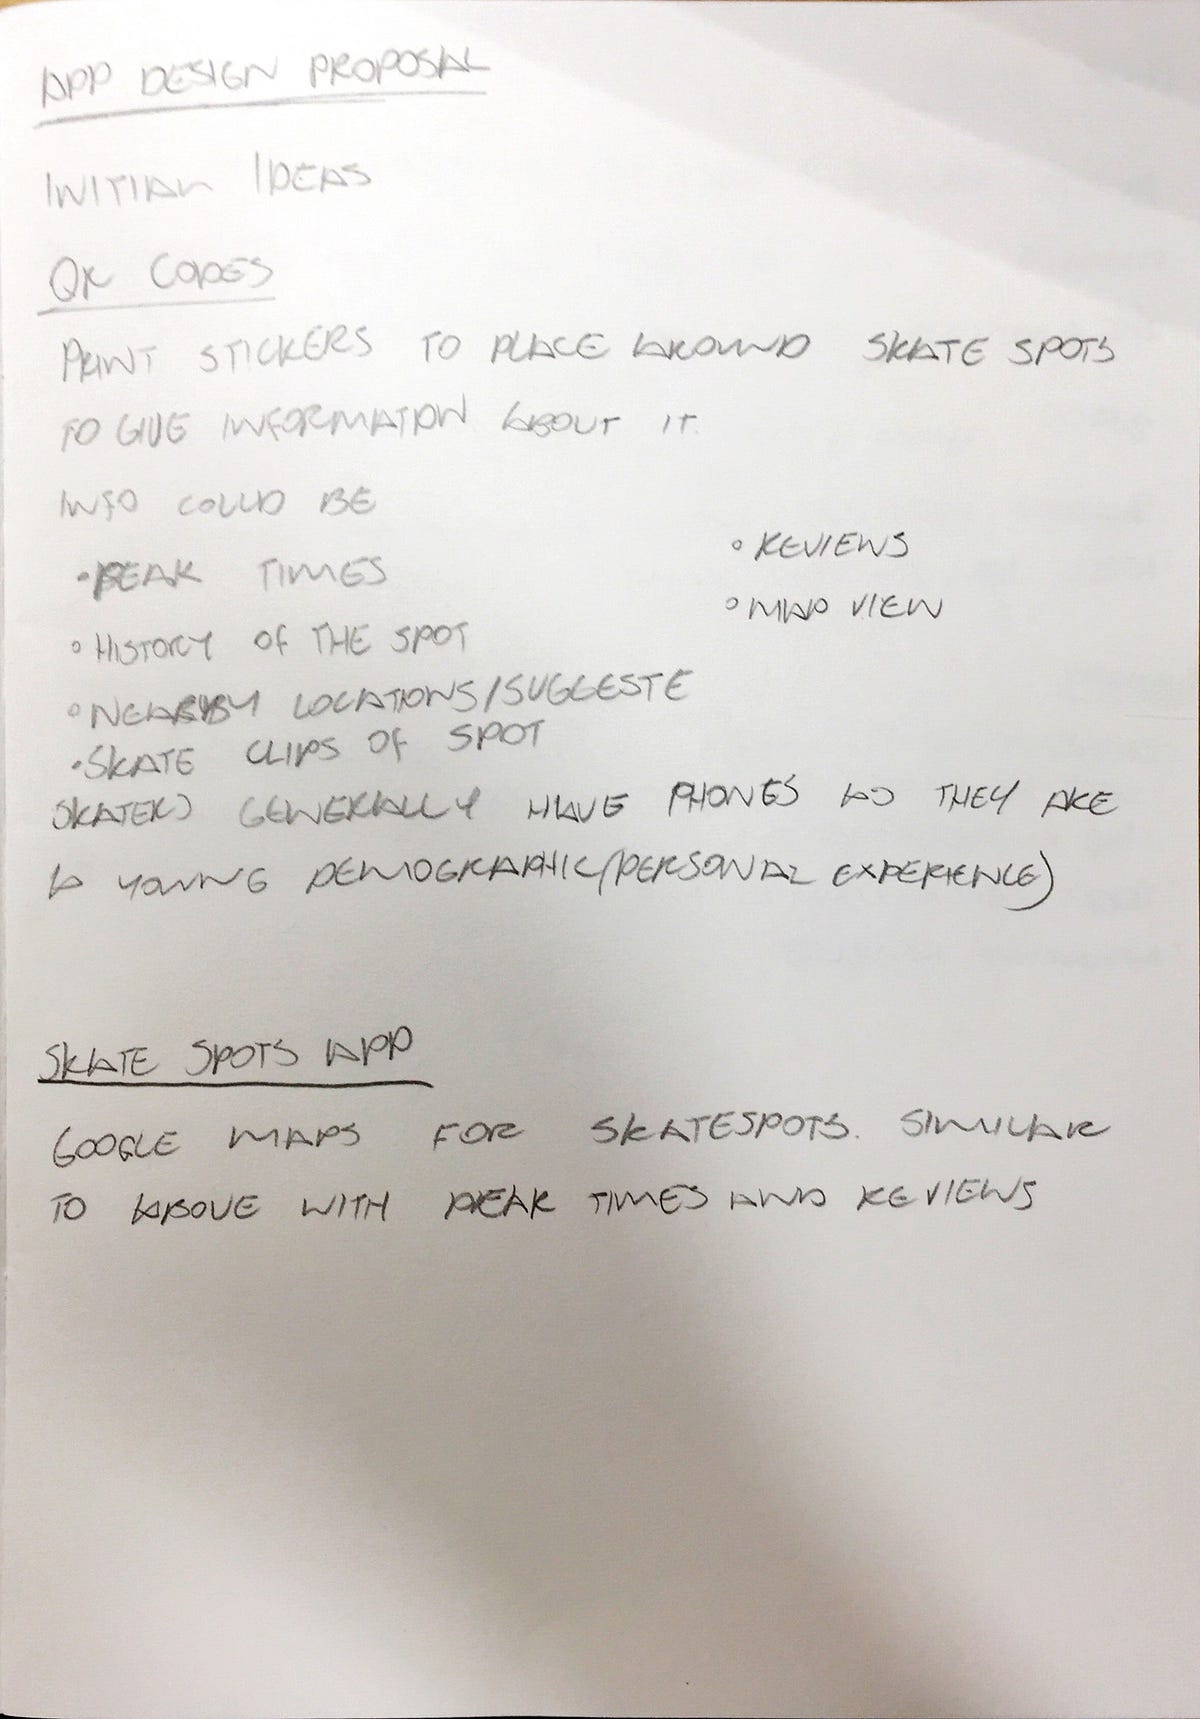 APP DESIGN PROPOSAL
INITIAL IDEAS
QR CODES
PRINT STICKERS TO PLACE AROUND SKATE SPOTS
TO GIVE INFORMATION ABOUT IT.
INFO COULD BE
• PEAK TIMES
• HISTORY OF THE SPOT
• NEARBY LOCATIONS/SUGGESTE
• SKATE CLIPS OF SPOT
• REVIEWS
• MAP VIEW
SKATERS GENERALLY HAVE PHONES AS THEY ARE
A YOUNG DEMOGRAPHIC (PERSONAL EXPERIENCE)
SKATE SPOTS APP
GOOGLE MAPS FOR SKATESPOTS. SIMILAR
TO ABOVE WITH PEAK TIMES AND REVIEWS